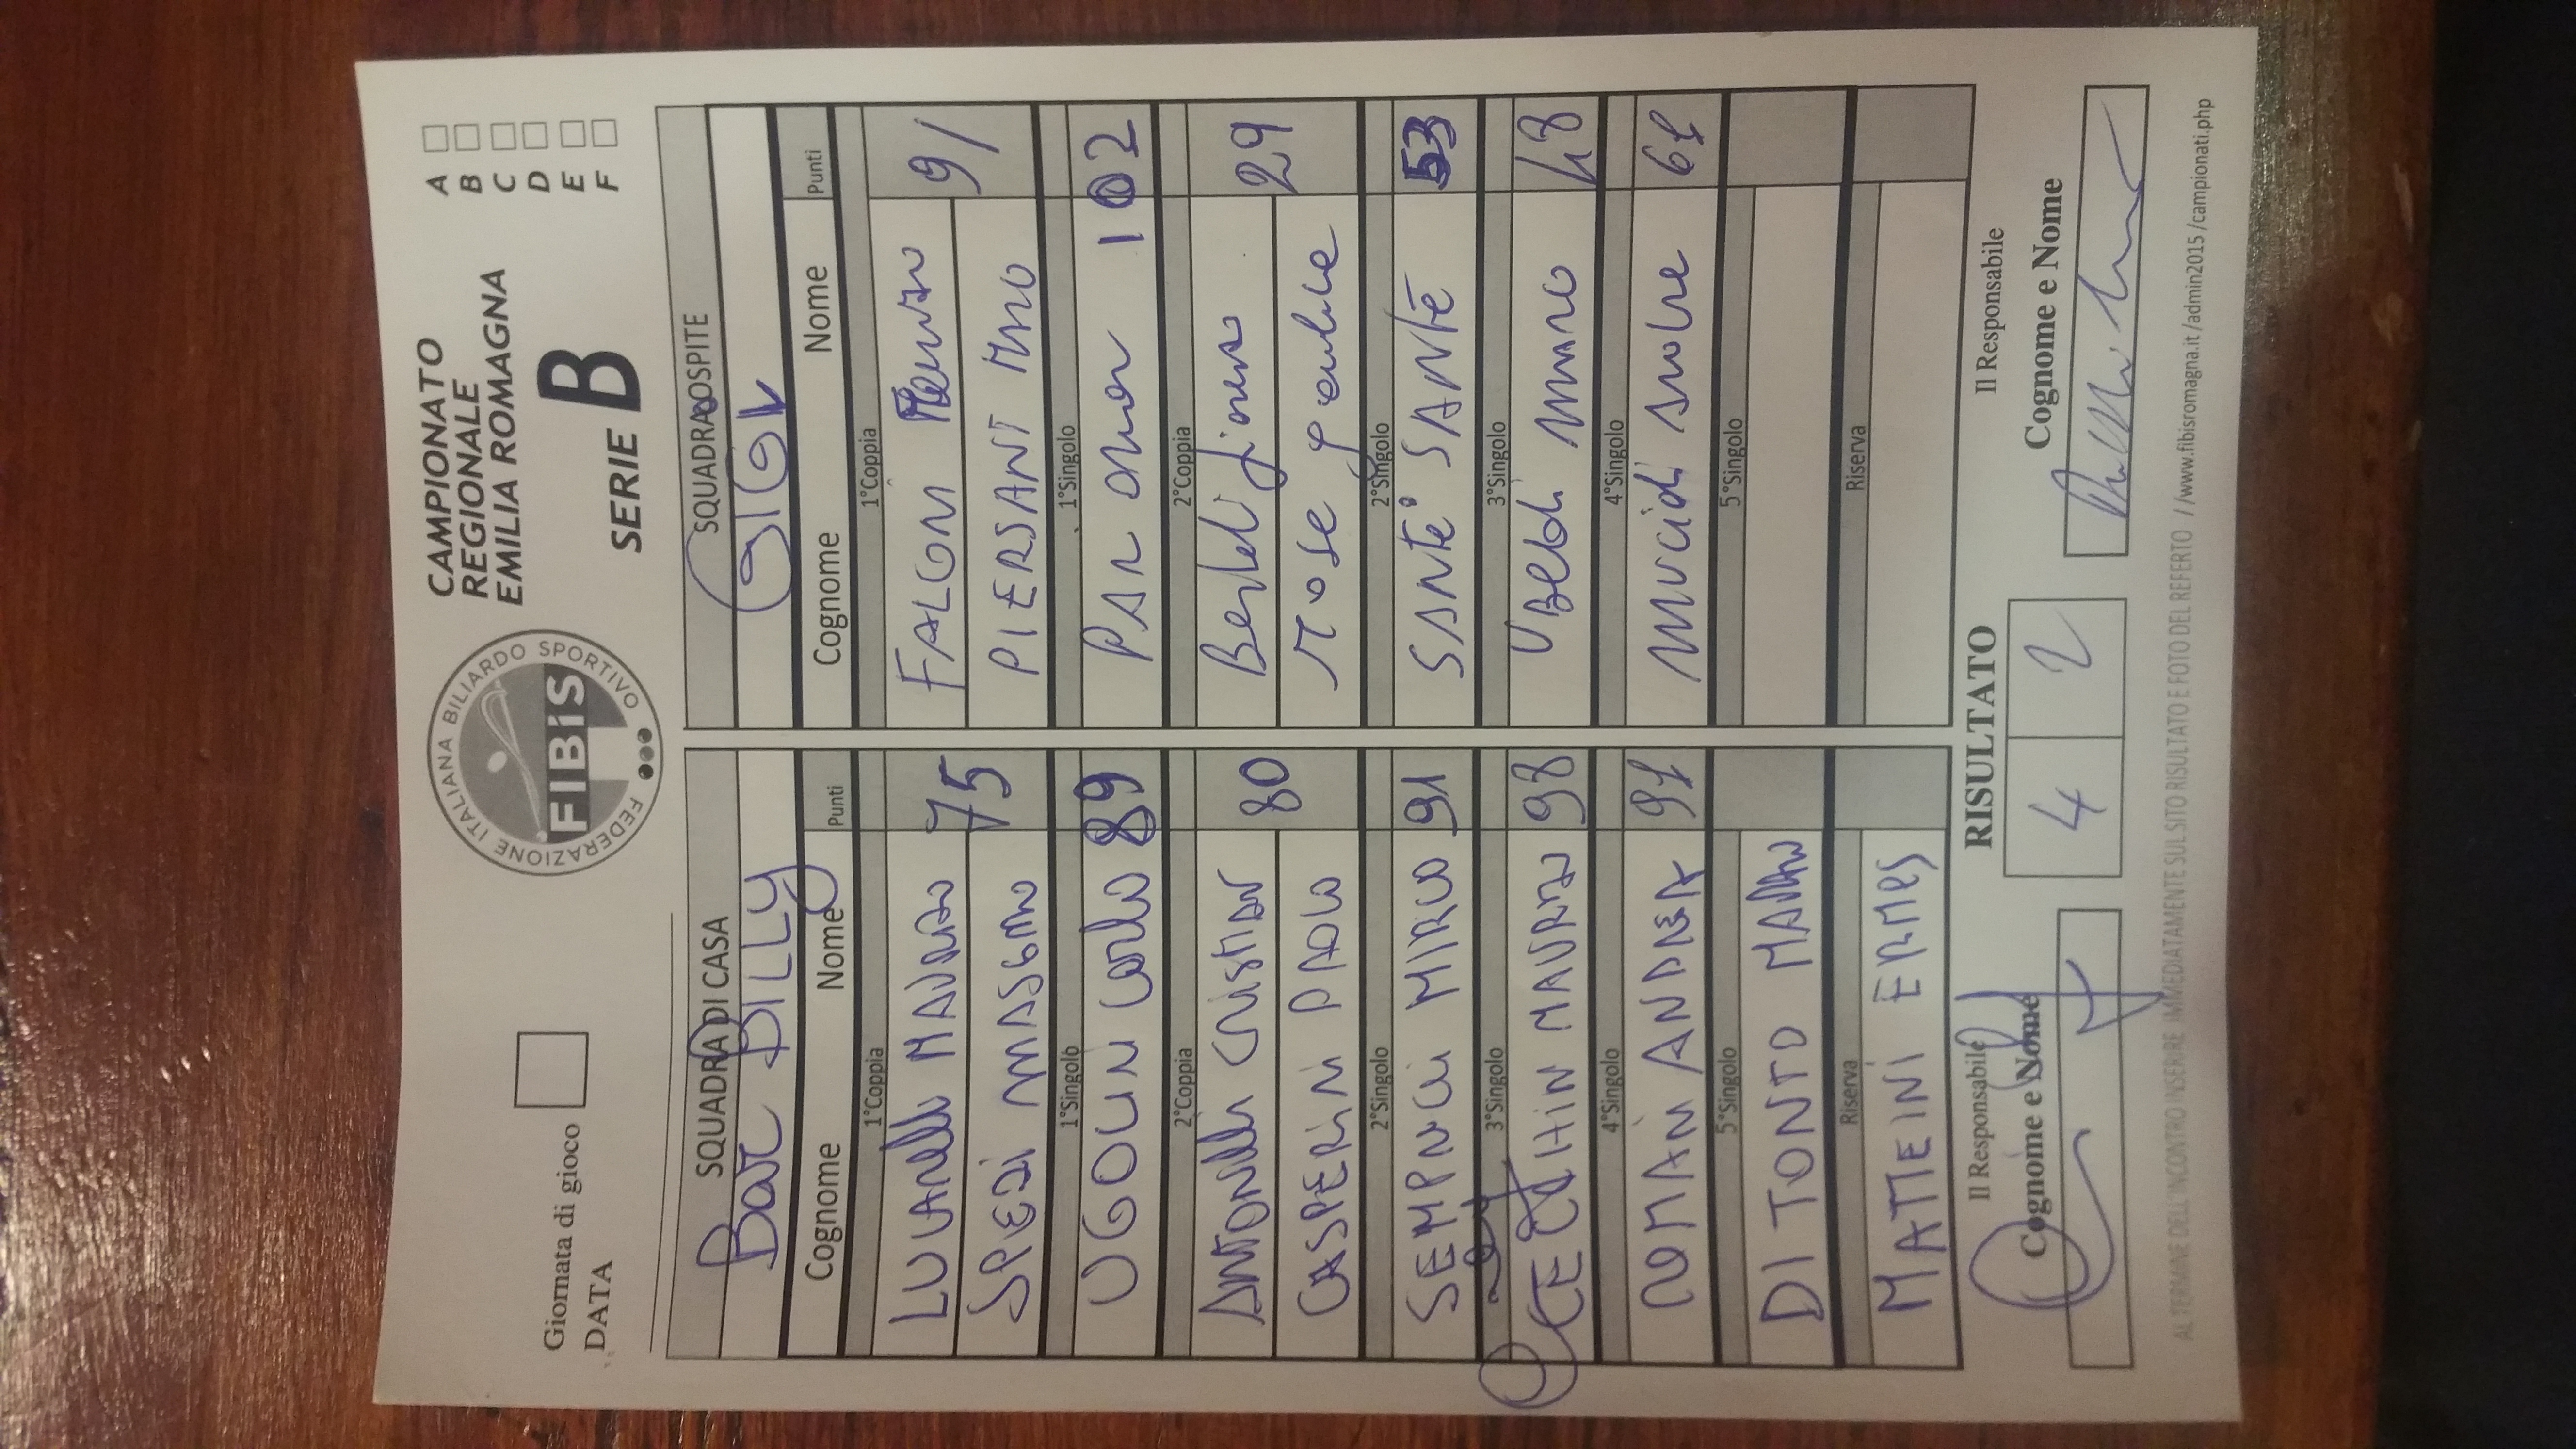 Giornata di gioco
DATA
FEDERAZIONE ITALIANA BILIARDO SPORTIVO
FIBiS
CAMPIONATO
REGIONALE
EMILIA ROMAGNA
SERIE B
A
B
C
D
E
F
SQUADRA DI CASA
Bar BILLY
Cognome Nome Punti
1°Coppia
MAURIZIO 75
SPEZI MASSIMO
1°Singolo
UGOLIN Carlo 89
2°Coppia
ANTONELLI CRISTIAN 80
GASPERINI PAOLO
2°Singolo
SEMPRUCCI MIRCO 91
3°Singolo
MAURIZIO 98
4°Singolo
ROMANI ANDREA 91
5°Singolo
DI TONTO MARCO
Riserva
MATTEINI ERMES
SQUADRA OSPITE
GIGI
Cognome Nome Punti
1°Coppia
FALGONI 91
PIERSANT
1°Singolo
102
2°Coppia
29
rose
2°Singolo
SANTE SANTE 53
3°Singolo
UBALDI 48
4°Singolo
61
5°Singolo
Riserva
Il Responsabile
Cognome e Nome
RISULTATO
4 2
Il Responsabile
Cognome e Nome
AL TERMINE DELL'INCONTRO INSERIRE IMMEDIATAMENTE SUL SITO RISULTATO E FOTO DEL REFERTO //www.fibisromagna.it/admin2015/campionati.php